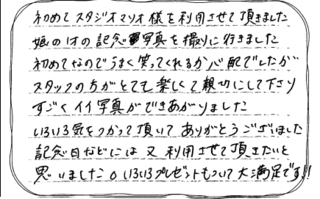 初めてスタジオマリオ様を利用させて頂きました
娘の1才の記念写真を撮りに行きました
初めてなのでうまく笑ってくれるか心配でしたが
スタッフの方がとても楽しくて親切にして下さり
すごくイイ写真ができあがりました
いろいろ気をつかって頂いてありがとうございました
記念日などには又利用させて頂きたいと
思いました。いろいろプレゼントもついて大満足です!!